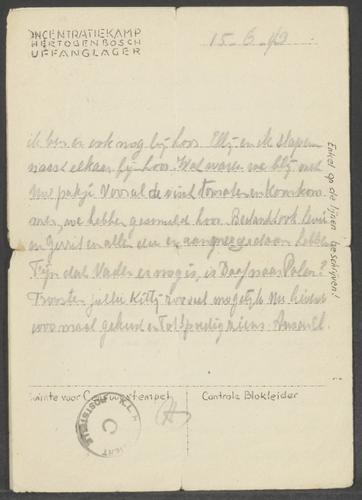 NCENTRATIEKAMP
HERTOGENBOSCH
UFFANGLAGER
15-6-43
ik ben er ook nog bij hoor. Elly en ik slapen
naast elkaar fijn hoor. Wat waren we blij met
Uw pakje Vooral de visch tomaten en komkom
mer, we hebben gesmuld hoor. Bedank ook
en Gerrit en allen die er aan hebben
Fijn dat Vader er nog is, is naar Polen?
Troosten jullie Kitty zooveel mogelijk
maal gekust en Tot spoedig ziens.
Enkel op de lijnen beschrijven!
uimte voor Censuurstempel
Controle Blokleider
C